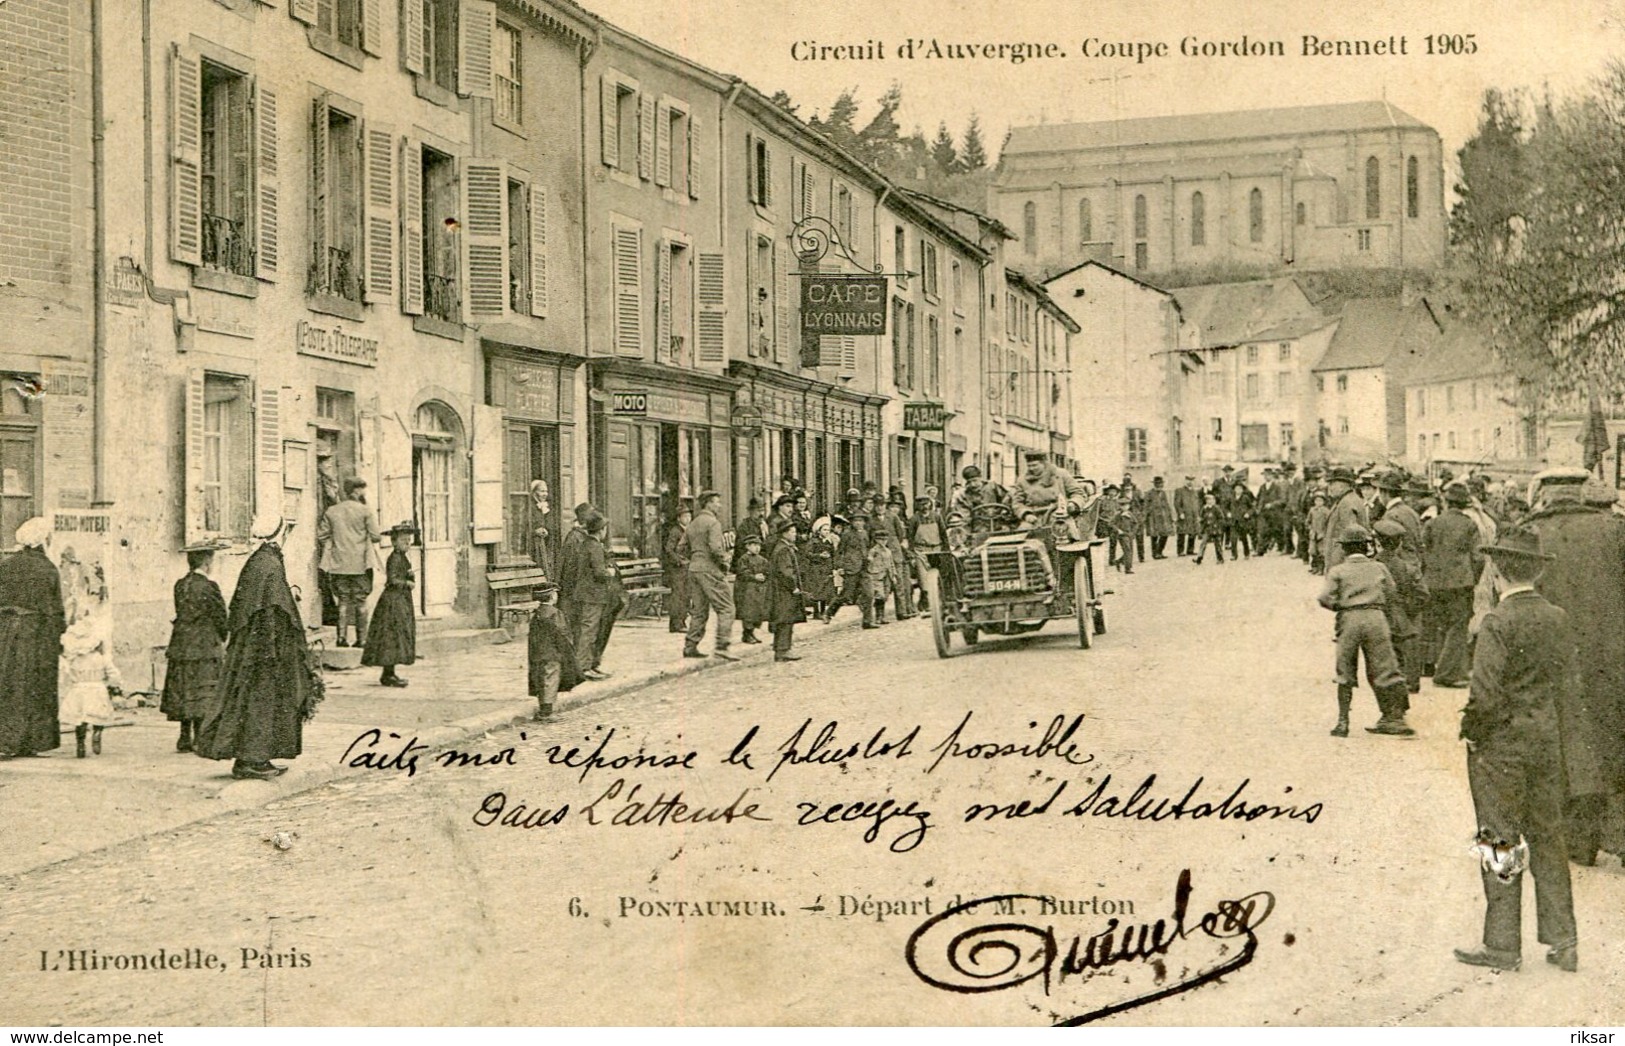 Circuit d'Auvergne. Coupe Gordon Bennett 1905
CAFE
LYONNAIS
POSTE & TÉLÉGRAPHE
MOTO
TABAC
BENZO-MOTEUR
504-N
Faites moi réponse le plustot possible
Dans L'attente recevez mes Salutatsions
6. PONTAUMUR. — Départ de M. Burton
L'Hirondelle, Paris
www.delcampe.net
riksar